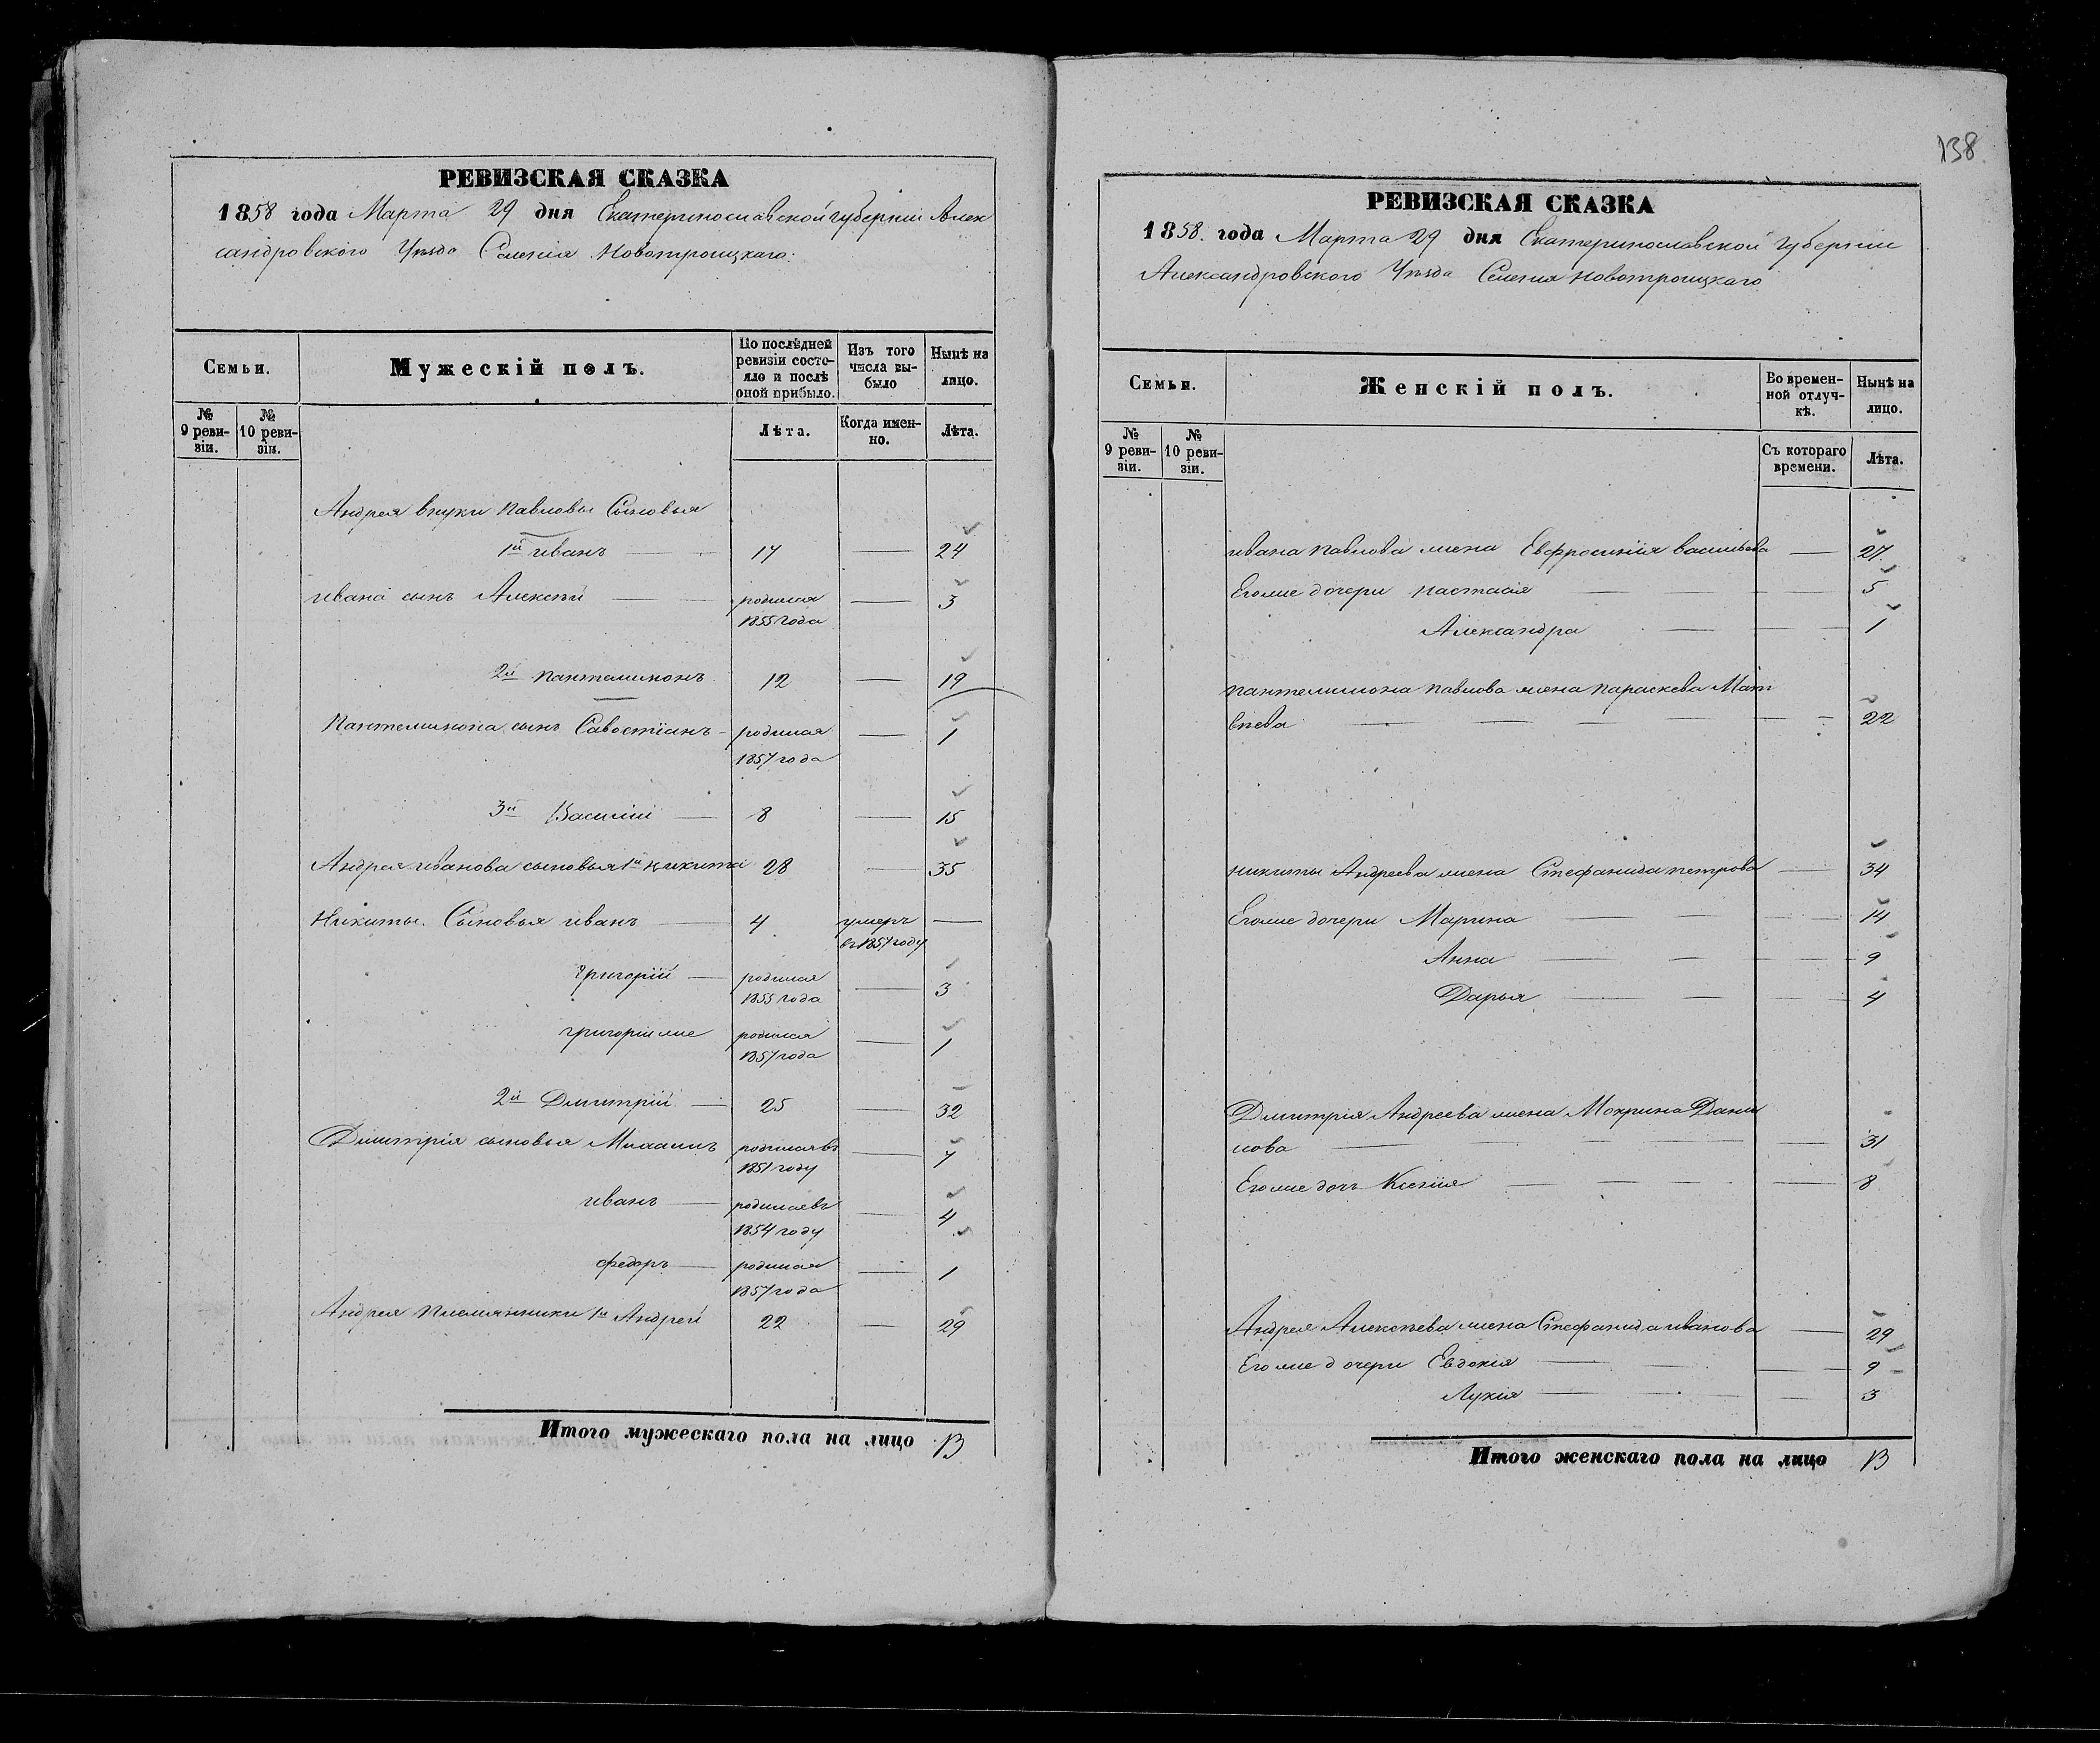 138
РЕВИЗСКАЯ СКАЗКА
1858 года Марта 29 дня Екатеринославской губерніи Алек
сандровского Уѣзда Селенія Новотроицкаго.
Семьи.
Мужескій полъ.
По послѣдней ревизіи состояло и послѣ оной прибыло.
Изъ того числа выбыло
Нынѣ на лицо.
№ 9 ревизіи.
№ 10 ревизіи.
Лѣта.
Когда именно.
Лѣта.
Андрея внуки Павловы Сыновья
1й иванъ 17 — 24
ивана сынъ Алексѣй родился — 3
1855 года
2й пантелимонъ 12 — 19
Пантелимона сынъ Савостіанъ родился — 1
1857 года
3й Василій 8 — 15
Андрея иванова сыновья 1й никита 28 — 35
Никиты Сыновья иванъ 4 умеръ —
въ 1857 году
григорій родился — 3
1855 года
григорій же родился — 1
1857 года
2й Дмитрій 25 — 32
Дмитрія сыновья родился въ — 7
1851 году
иванъ родился въ — 4
1854 году
федоръ родился — 1
1857 года
Андрея племянники 1й Андрей 22 — 29
Итого мужескаго пола на лицо 13
РЕВИЗСКАЯ СКАЗКА
1858. года Марта 29 дня Екатеринославской губерніи
Александровского Уѣзда Селенія Новотроицкаго
Семьи.
Женскій полъ.
Во временной отлучкѣ.
Нынѣ на лицо.
№ 9 ревизіи.
№ 10 ревизіи.
Съ котораго времени.
Лѣта.
ивана павлова жена Евфросинія васильева — 27
Его же дочери настасія — 5
Александра — 1
пантелимона павлова жена параскева Мат
вѣева — 22
никиты Андреева жена Стефанида петрова — 34
Его же дочери Марина — 14
Анна — 9
Дарья — 4
Дмитрія Андреева жена Мокрина Дани
лова — 31
Его же дочь Ксенія — 8
Андрея Алексѣева жена Стефанида иванова — 29
Его же дочери Евдокія — 9
Лукія — 3
Итого женскаго пола на лицо 13